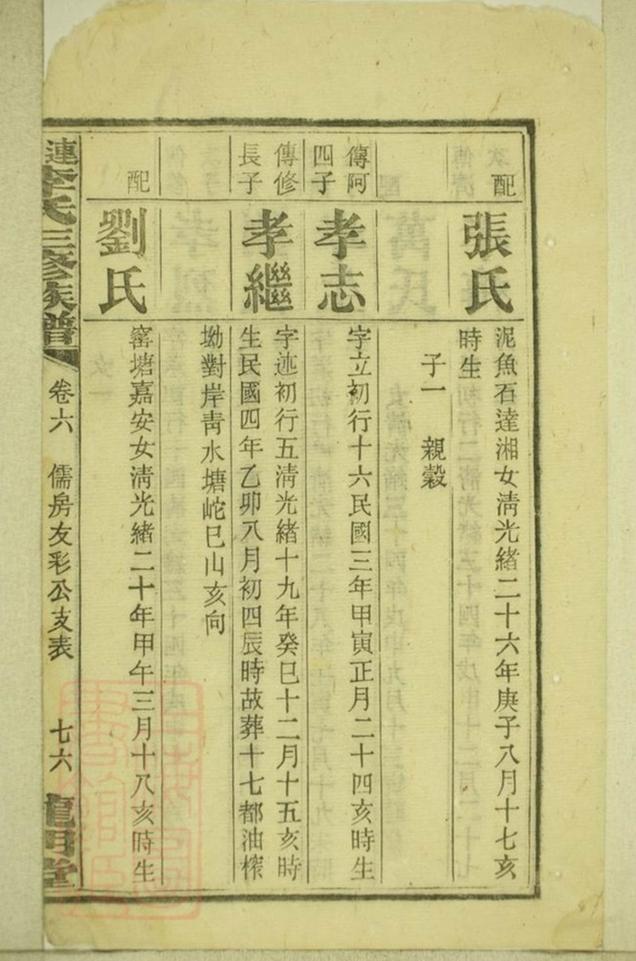 配
張氏
泥魚石達湘女清光緒二十六年庚子八月十七亥
時生
子一 親穀
傳阿
四子
孝志
字立初行十六民國三年甲寅正月二十四亥時生
傳修
長子
孝繼
字述初行五清光緒十九年癸巳十二月十五亥時
生民國四年乙卯八月初四辰時故葬十七都油榨
坳對岸靑水塘屹巳山亥向
配
劉氏
窰塘嘉安女清光緒二十年甲午三月十八亥時生
連李氏三修族譜
卷六 儒房友彩公支表
七六
龍門堂